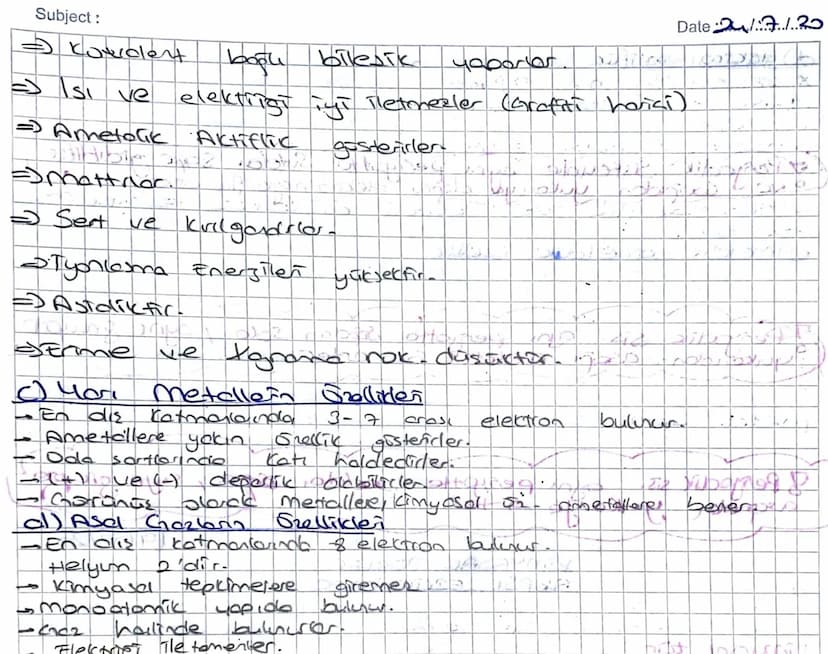 Subject :
Date : 24/7/20
⇒ Kovalent bağlı bileşik yaparlar.
⇒ Isı ve elektiriği iyi iletmezler (Grafiti harici)
⇒ Ametalik Aktiflik gösterirler.
⇒ Mattırlar.
⇒ Sert ve kırılgandırlar.
⇒ İyonlaşma Enerjileri yüksektir.
⇒ Asidiktir.
⇒ Erime ve Kaynama nok. düşüktür.
c) Yarı Metallerin Özellikleri
→ En dış katmanlarında 3-7 arası elektron bulunur.
→ Ametallere yakın özellik gösterirler.
→ Oda şartlarında katı haldedirler.
→ (+) ve (-) değerlik alabilirler.
→ Görünüş olarak metallere, kimyasal öz. ametallere benzer.
d) Asal Gazların Özellikleri
→ En dış katmanlarında 8 elektron bulunur.
Helyum 2'dir.
→ Kimyasal tepkimelere giremez
→ monoatomik yapıda bulunur.
→ Gaz halinde bulunurlar.
Elektriği iletemezler.